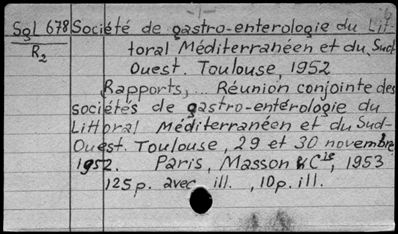 SgL 678 Société de gastro-enterologie du Lit-
R2 toral Méditerranéen et du Sud-
Ouest. Toulouse, 1952
Rapports, ... Réunion conjointe des
sociétés de gastro-entérologie du
Littoral Méditerranéen et du Sud-
Ouest. Toulouse, 29 et 30 novembre
1952. Paris, Masson & Cie, 1953
125p. avec ill. , 10p. ill.